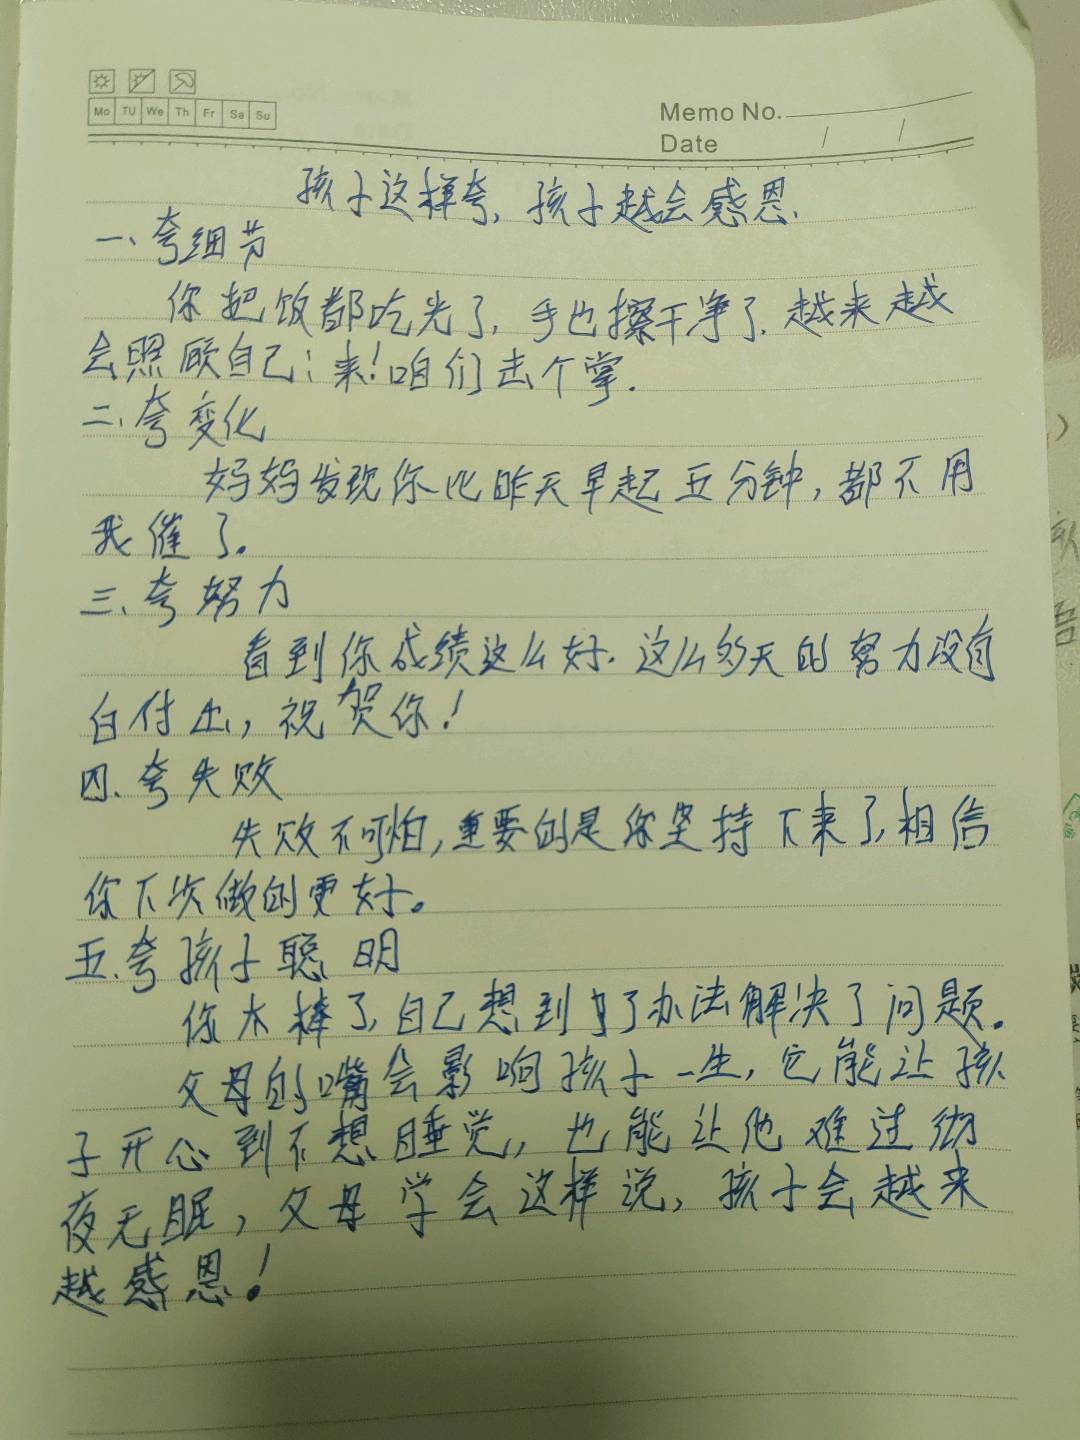 Mo TU We Th Fr Sa Su
Memo No.
Date / /
孩子这样夸，孩子越会感恩.
一、夸细节
你把饭都吃光了，手也擦干净了.越来越
会照顾自己；来！咱们击个掌.
二、夸变化
妈妈发现你比昨天早起五分钟，都不用
我催了。
三、夸努力
看到你成绩这么好.这么多天的努力没有
白付出，祝贺你！
四、夸失败
失败不可怕，重要的是你坚持下来了，相信
你下次做的更好。
五.夸孩子聪明
你太棒了，自己想到了办法解决了问题。
父母的嘴会影响孩子一生，它能让孩
子开心到不想睡觉，也能让他难过彻
夜无眠，父母学会这样说，孩子会越来
越感恩！